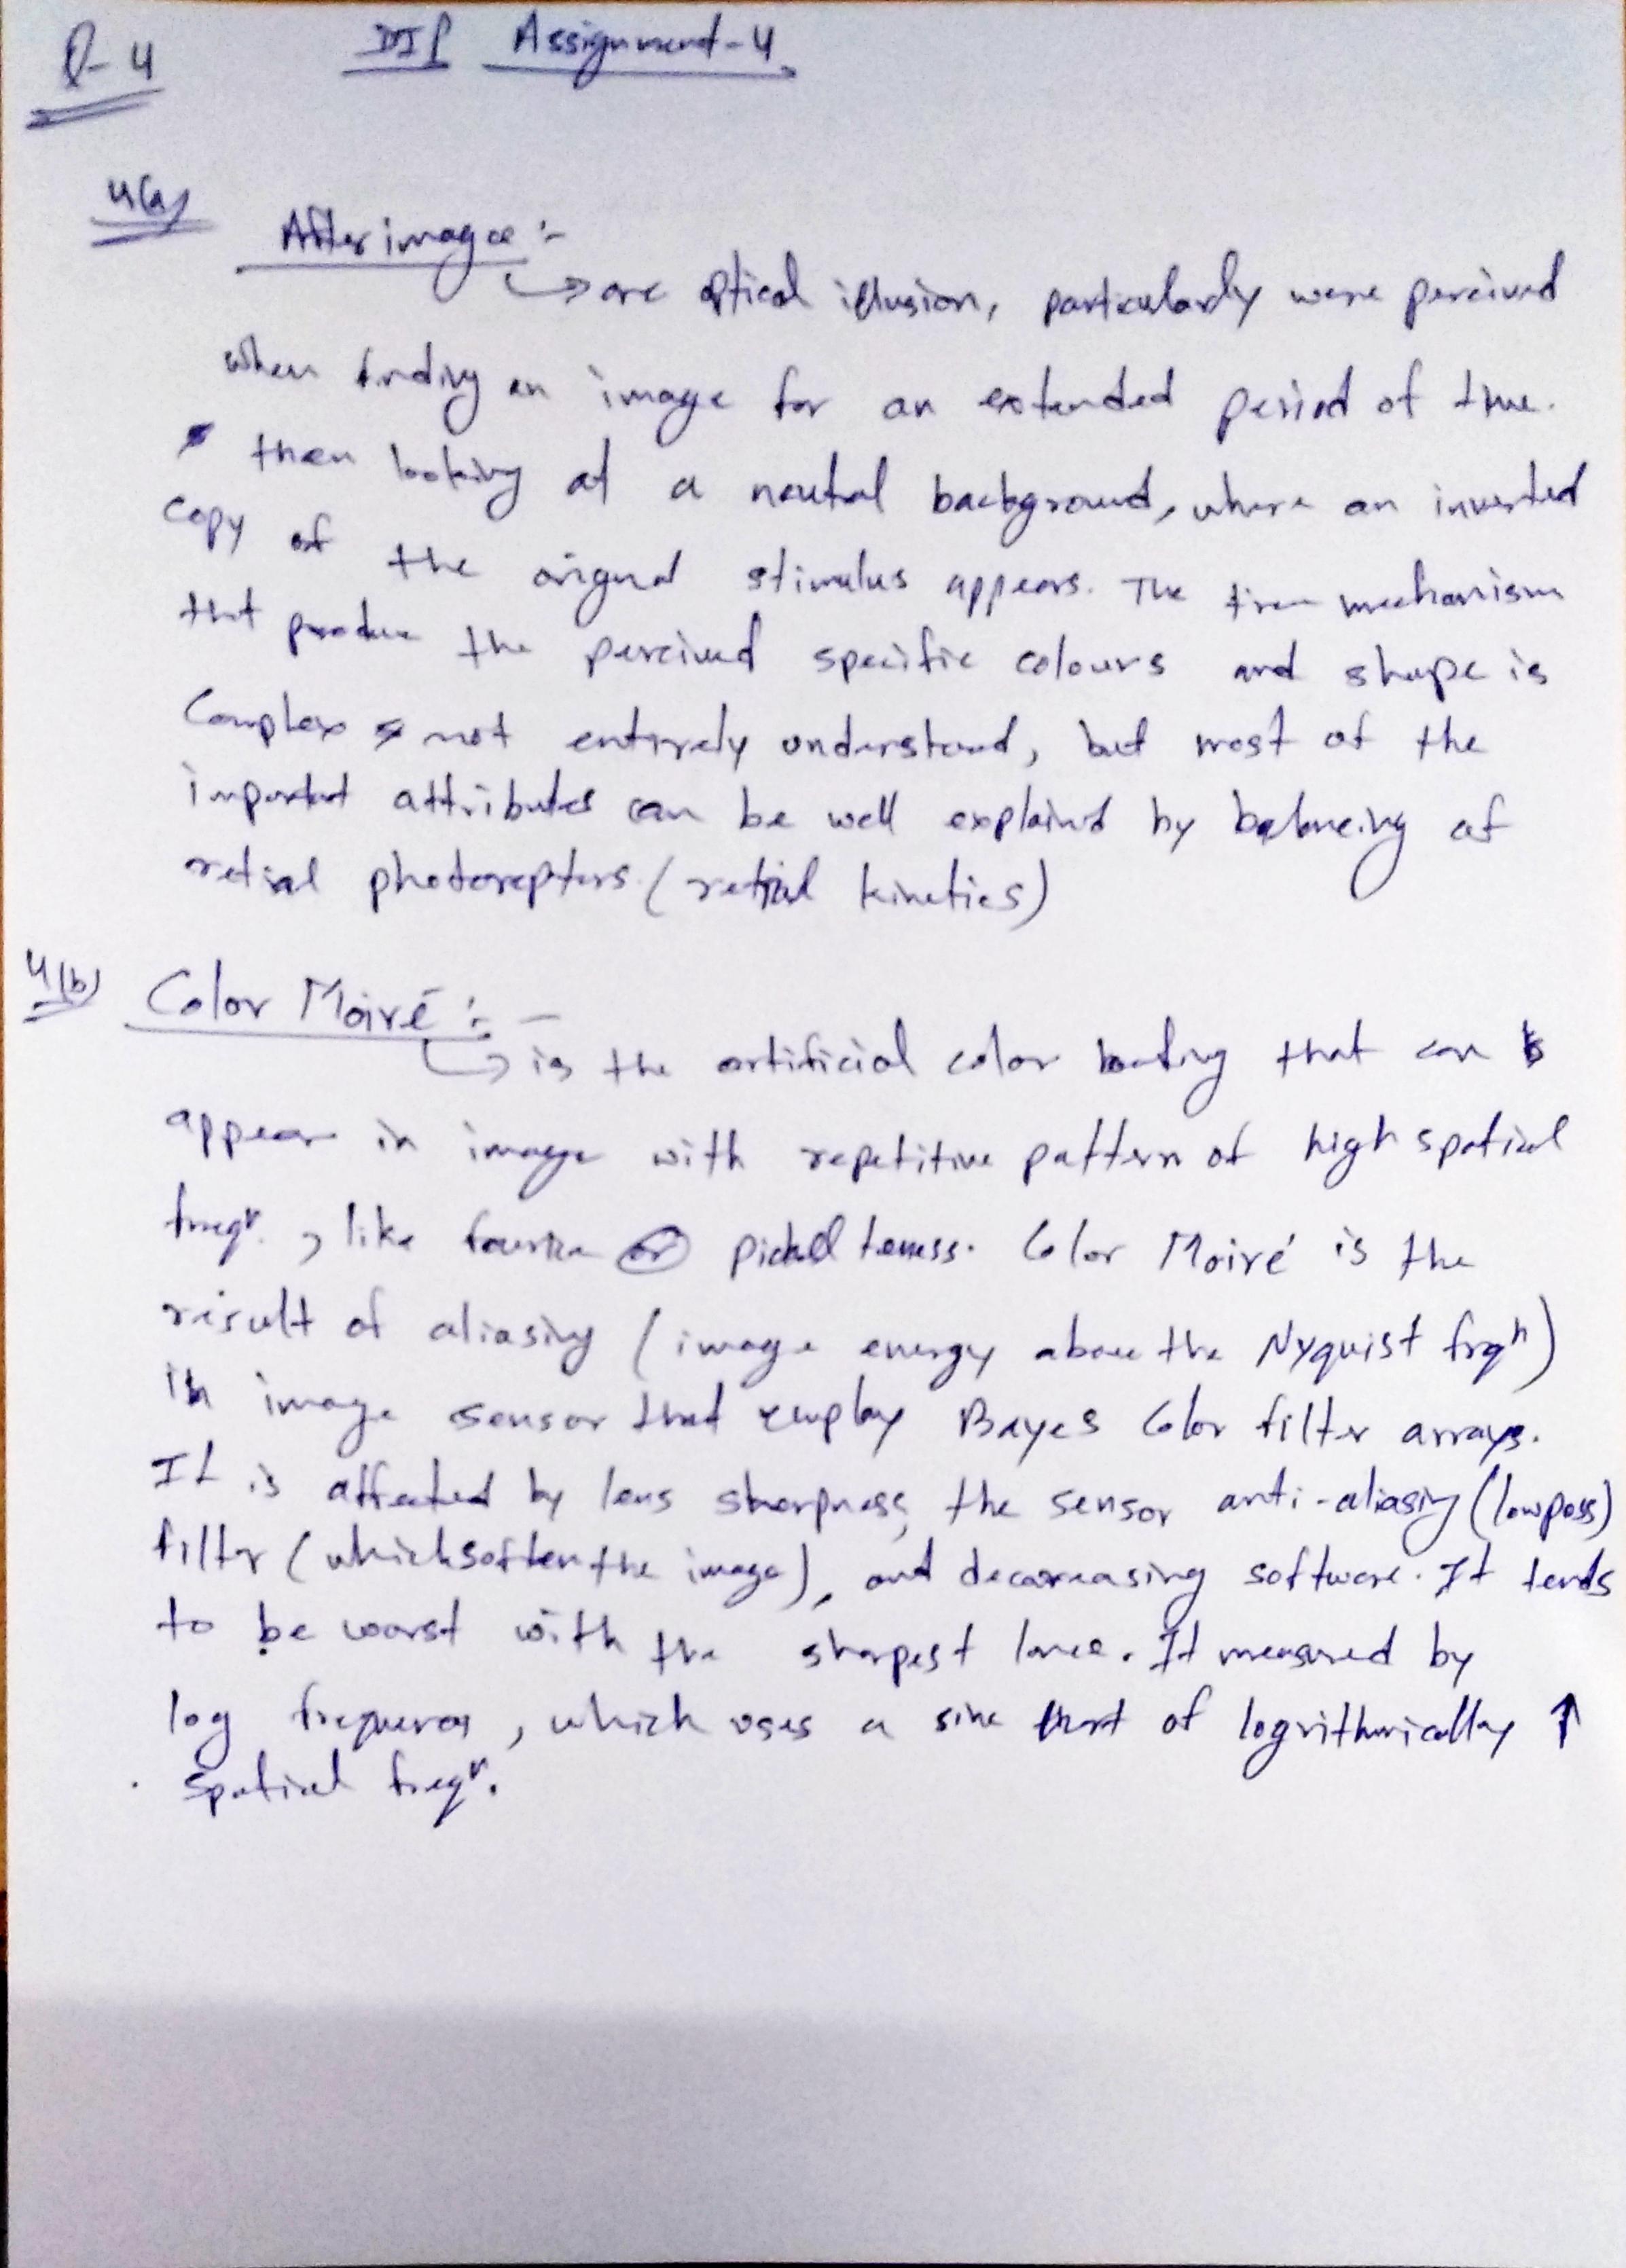 Q-4 DIP Assignment-4
4(a)
After image :-
↳ are optical illusion, particularly were perceived
when finding an image for an extended period of time.
then looking at a neutral background, where an inverted
copy of the original stimulus appears. The mechanism
that produce the perceived specific colours and shape is
Complex not entirely understood, but most of the
important attributes can be well explained by balancing of
retial photorepters (retial kinetics)
4(b) Color Moiré :-
↳ is the artificial color that can
appear in image with repetitive pattern of high spatial
freqn. , like or. Color Moiré is the
result of aliasing (image energy above the Nyquist frqn)
in image sensor that employ Bayes Color filter arrays.
It is affected by lens sharpness, the sensor anti-aliasing (lowpass)
filter (which soften the image), and decareasing software. It tends
to be worst with the sharpest lence. It measured by
log, which uses a sine of logrithmically ↑
spatial freqn.